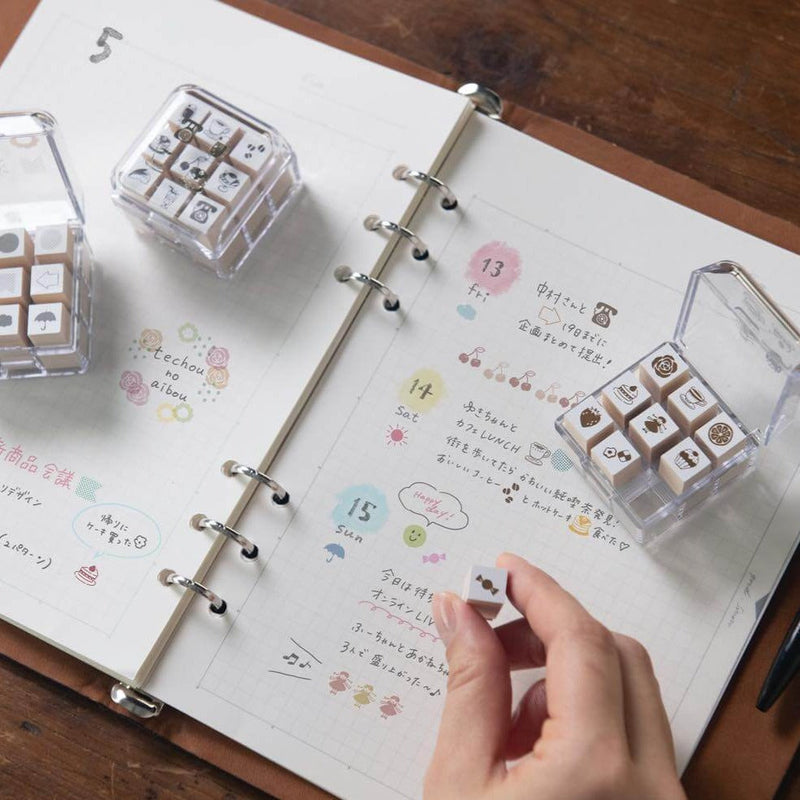 5
techou
no
aibou
商品会議
デザイン
(2パターン)
帰りに
ケーキ買った
13
fri
中村さんと
19日までに
企画まとめて提出!
14
Sat
ゆきちゃんと
カフェLUNCH
街を歩いてたらかわいい純喫茶発見!
おいしいコーヒーとホットケーキ食べた♡
15
Sun
Happy
day!
今日は待ち
オンラインLIV
ふーちゃんとあかねちゃ
3人で盛り上がった〜♪